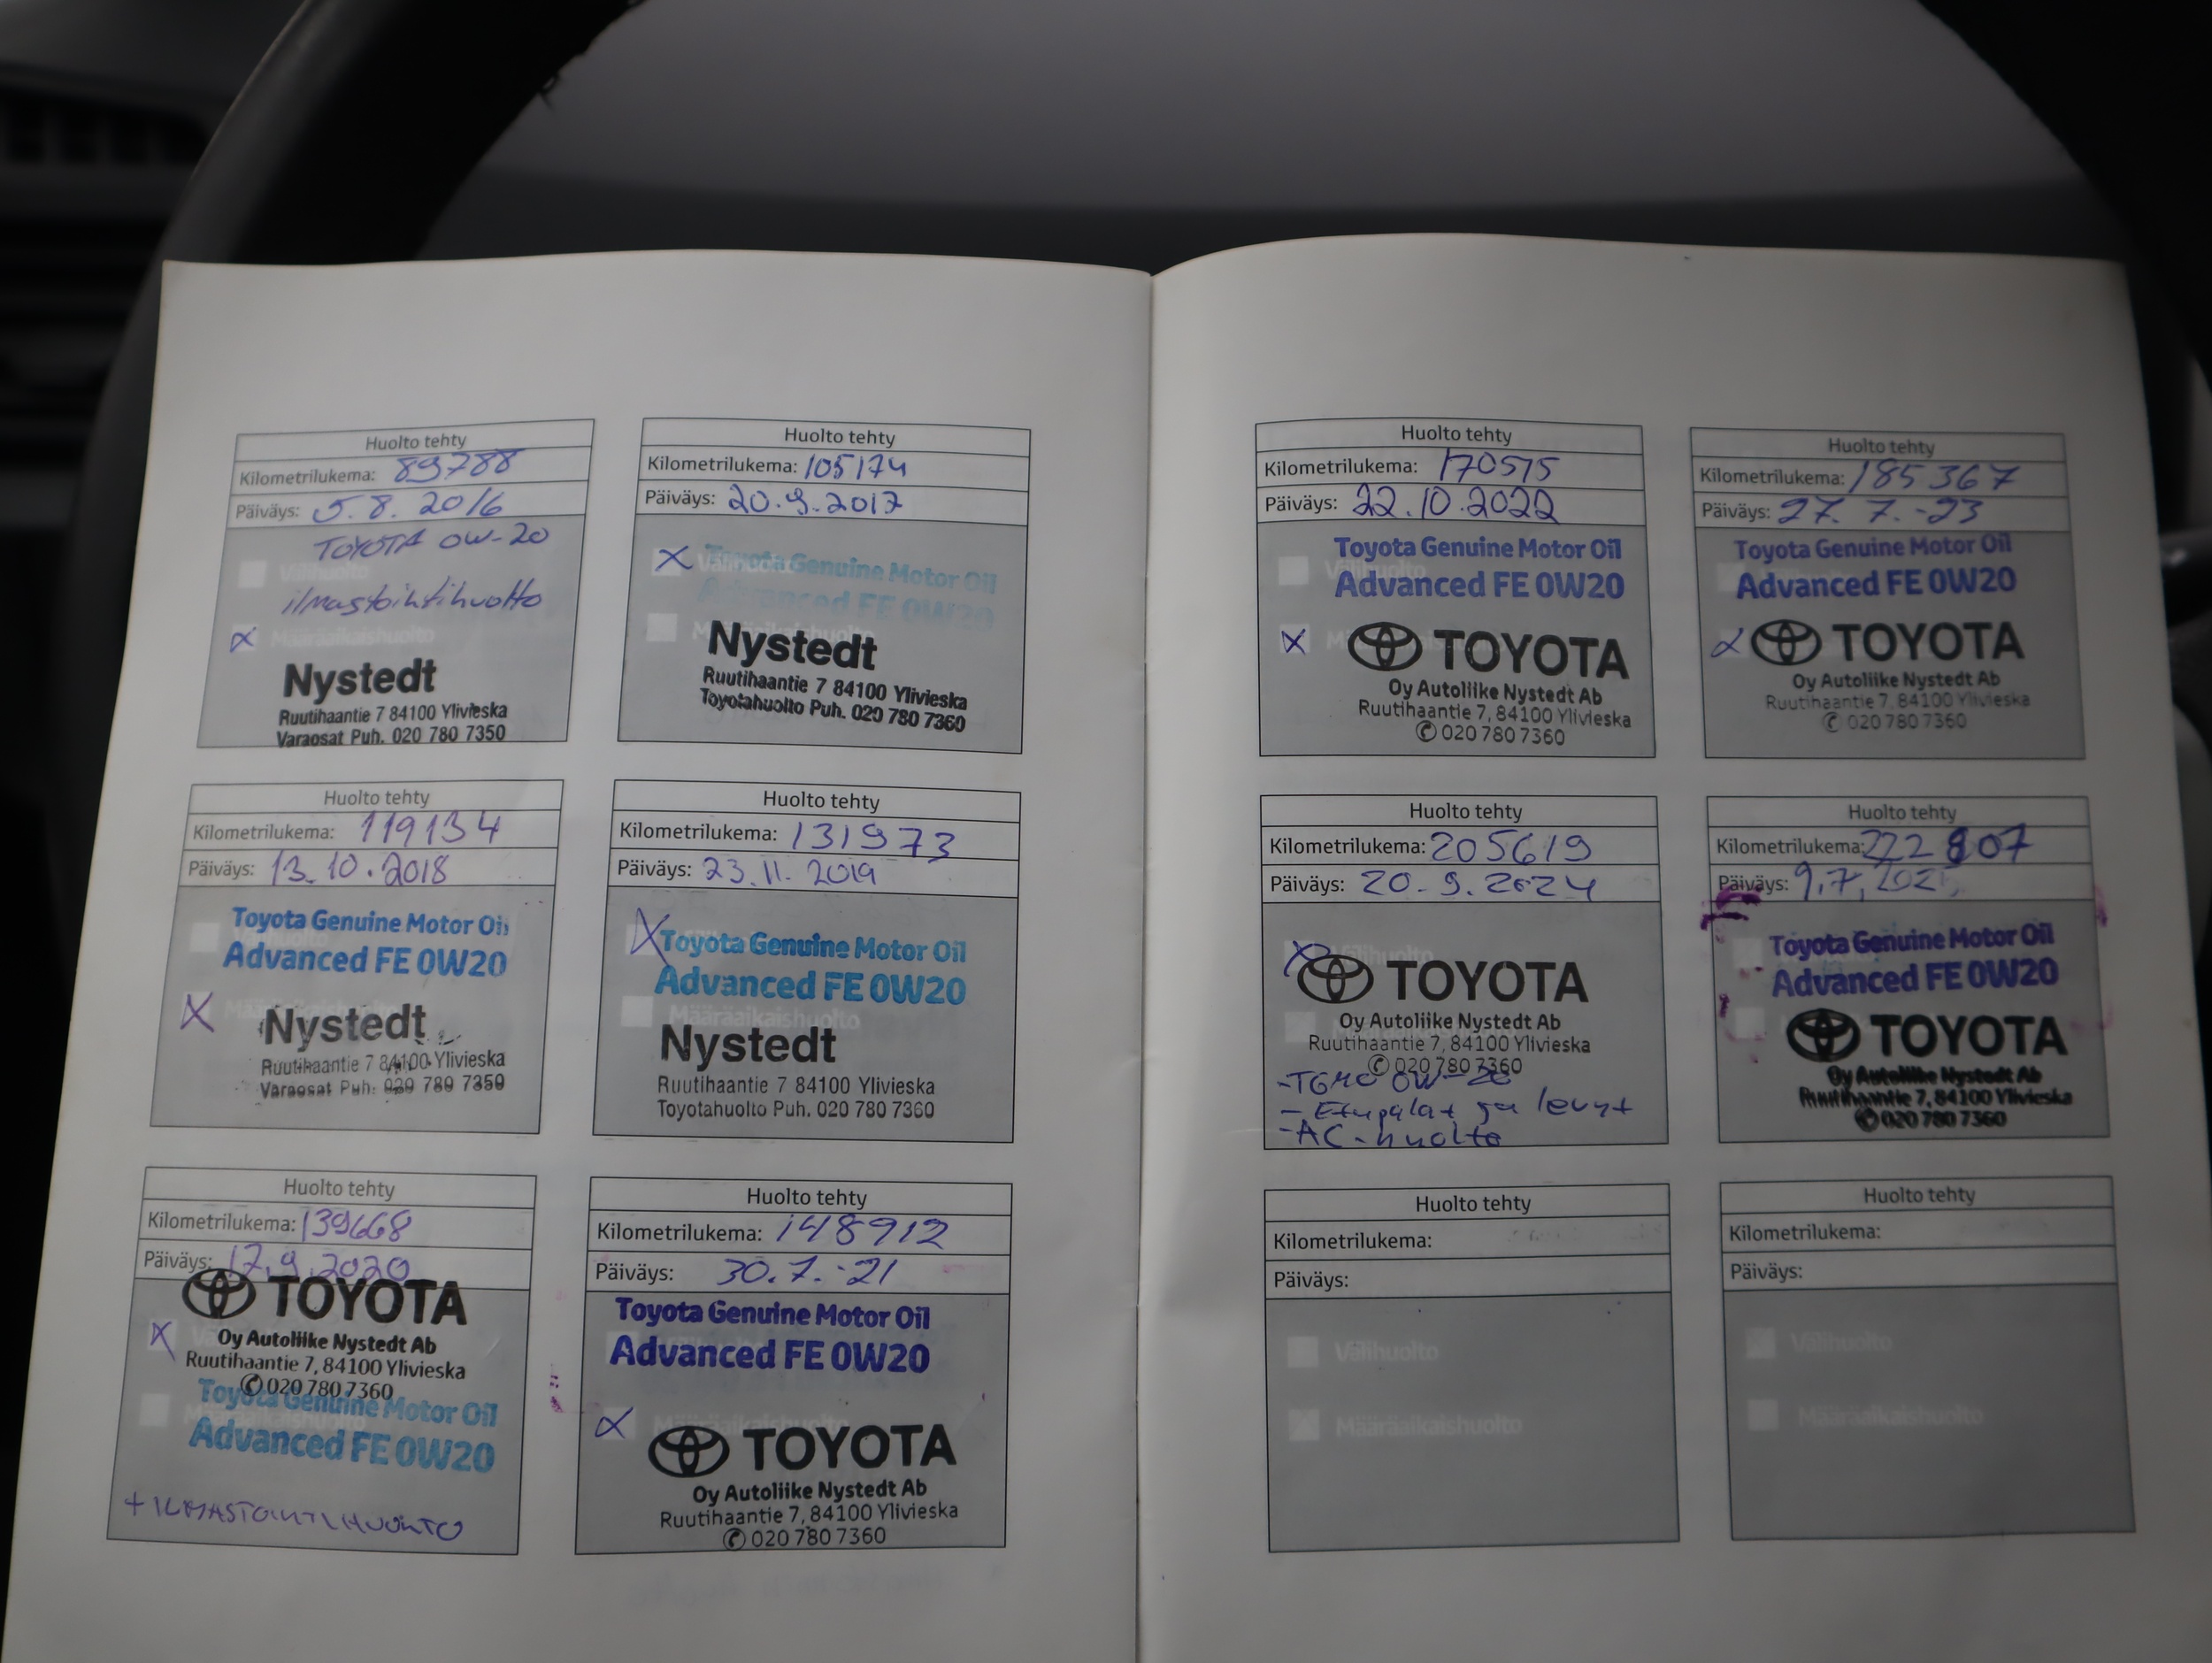 Huolto tehty
Kilometrilukema: 89788
Päiväys: 5.8.2016
TOYOTA 0W-20
Välihuolto
ilmastointihuolto
Määräaikaishuolto
Nystedt
Ruutihaantie 7 84100 Ylivieska
Varaosat Puh. 020 780 7350
Huolto tehty
Kilometrilukema: 105174
Päiväys: 20.9.2017
Välihuolto
Toyota Genuine Motor Oil
Advanced FE 0W20
Määräaikaishuolto
Nystedt
Ruutihaantie 7 84100 Ylivieska
Toyotahuolto Puh. 020 780 7360
Huolto tehty
Kilometrilukema: 119134
Päiväys: 13.10.2018
Toyota Genuine Motor Oil
Advanced FE 0W20
Määräaikaishuolto
Nystedt
Ruutihaantie 7 84100 Ylivieska
Varaosat Puh. 020 780 7350
Huolto tehty
Kilometrilukema: 131973
Päiväys: 23.11.2019
Toyota Genuine Motor Oil
Advanced FE 0W20
Määräaikaishuolto
Nystedt
Ruutihaantie 7 84100 Ylivieska
Toyotahuolto Puh. 020 780 7360
Huolto tehty
Kilometrilukema: 139668
Päiväys: 17.9.2020
TOYOTA
Oy Autoliike Nystedt Ab
Ruutihaantie 7, 84100 Ylivieska
020 780 7360
Toyota Genuine Motor Oil
Määräaikaishuolto
Advanced FE 0W20
+ ILMASTOINTIHUOLTO
Huolto tehty
Kilometrilukema: 148912
Päiväys: 30.7.-21
Toyota Genuine Motor Oil
Advanced FE 0W20
Määräaikaishuolto
TOYOTA
Oy Autoliike Nystedt Ab
Ruutihaantie 7, 84100 Ylivieska
020 780 7360
Huolto tehty
Kilometrilukema: 170515
Päiväys: 22.10.2022
Toyota Genuine Motor Oil
Välihuolto
Advanced FE 0W20
TOYOTA
Oy Autoliike Nystedt Ab
Ruutihaantie 7, 84100 Ylivieska
020 780 7360
Huolto tehty
Kilometrilukema: 185367
Päiväys: 27.7.-23
Toyota Genuine Motor Oil
Advanced FE 0W20
TOYOTA
Oy Autoliike Nystedt Ab
Ruutihaantie 7, 84100 Ylivieska
020 780 7360
Huolto tehty
Kilometrilukema: 205619
Päiväys: 20.9.2024
Välihuolto
TOYOTA
Oy Autoliike Nystedt Ab
Ruutihaantie 7, 84100 Ylivieska
020 780 7360
-TGMO 0W-20
- Etupalat ja levyt
-AC-huolto
Huolto tehty
Kilometrilukema: 222807
Päiväys: 9.7.
Toyota Genuine Motor Oil
Advanced FE 0W20
TOYOTA
Oy Autoliike Nystedt Ab
Ruutihaantie 7, 84100 Ylivieska
020 780 7360
Huolto tehty
Kilometrilukema:
Päiväys:
Välihuolto
Määräaikaishuolto
Huolto tehty
Kilometrilukema:
Päiväys:
Välihuolto
Määräaikaishuolto